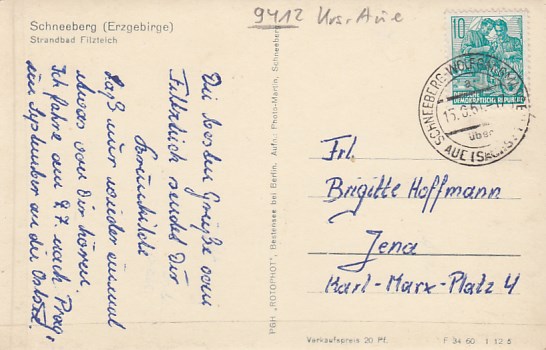 Schneeberg (Erzgebirge)
Strandbad Filzteich
9412 Krs. Aue
Die besten Grüße vom
Filzteich sendet Dir
Brunhilde
Laß mir wieder einmal
etwas von Dir hören.
Ich fahre am 7.7. nach Prag,
im September an die Ostsee.
PGH „ROTOPHOT", Bestensee bei Berlin. Aufn.: Photo-Martin, Schneeberg
10
DEUTSCHE DEMOKRATISCHE REPUBLIK
SCHNEEBERG-WOLFGANGMASSEN
15.6.61
über
AUE (SACHS)
Frl.
Brigitte Hoffmann
Jena
Karl-Marx-Platz 4
Verkaufspreis 20 Pf.
F 34 60 I 12 5